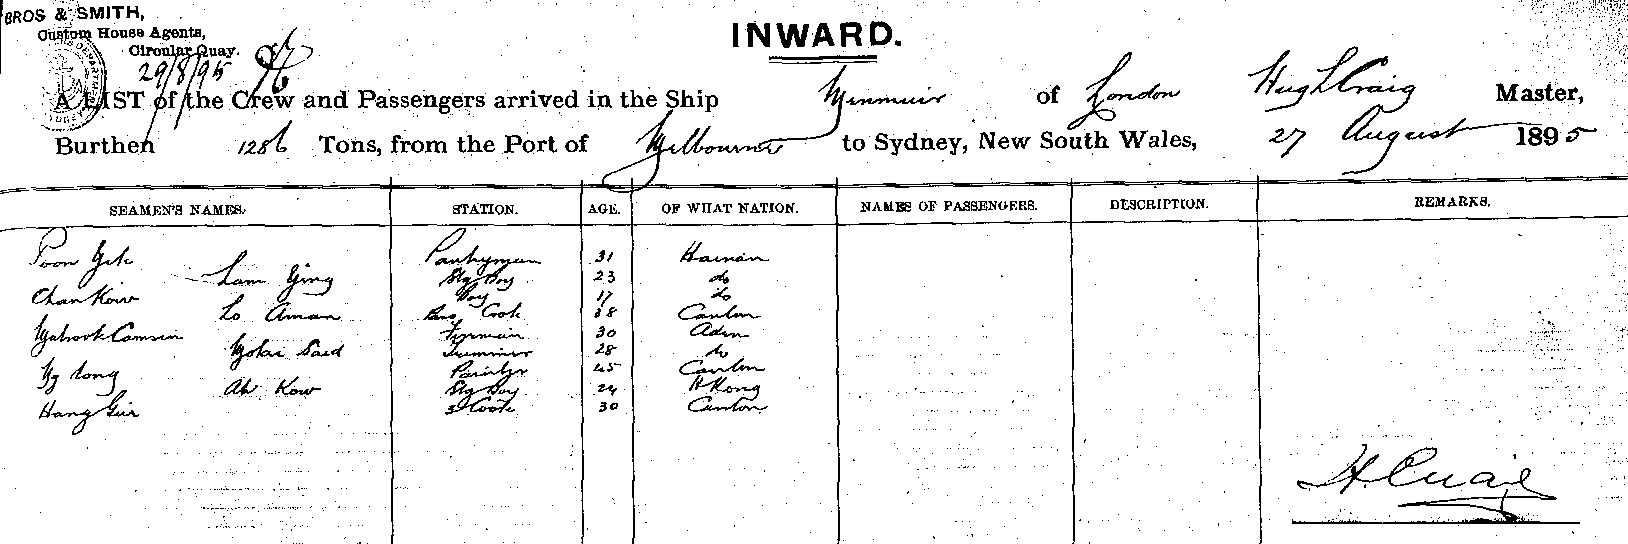 BROS & SMITH,
Custom House Agents,
Circular Quay.
29/8/95
INWARD.
A LIST of the Crew and Passengers arrived in the Ship Menmuir of London Hugh Craig Master,
Burthen 1286 Tons, from the Port of Melbourne to Sydney, New South Wales, 27 August 1895
SEAMEN'S NAMES. STATION. AGE. OF WHAT NATION. NAMES OF PASSENGERS. DESCRIPTION. REMARKS.
Poon Yik Pantryman 31 Hainan
Lam Ying Stg Boy 23 do
Chan Kow Boy 17 do
Lo Aman Cook 38 Canton
Fireman 30 Aden
Said Trimmer 28 do
Ng Painter 45 Canton
Ah Kow Stg Boy 24 H Kong
Hang 3 Cook 30 Canton
H Craig